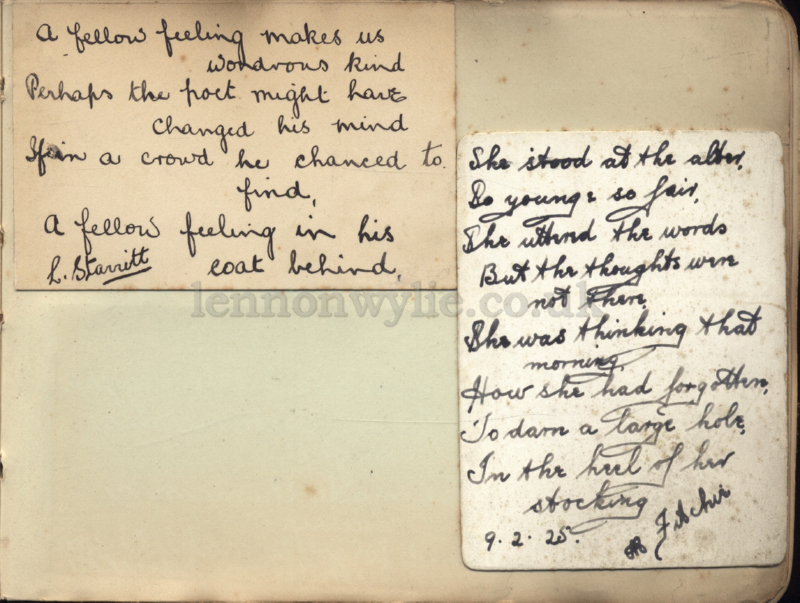 A fellow feeling makes us
wondrous kind
Perhaps the poet might have
changed his mind
If in a crowd he chanced to
find,
A fellow feeling in his
coat behind.
L. Starritt
She stood at the alter,
So young & so fair,
She uttered the words
But the thoughts were
not there.
She was thinking that
morning,
How she had forgotten,
To darn a large hole,
In the heel of her
stocking
9.2.25.
lennonwylie.co.uk